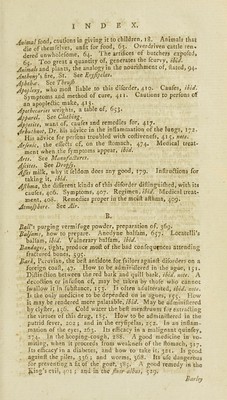 INDEX.
Animal food, cautions in giving it to children, 18. Animals that
die of themselves, unfit for food, 63. Overdriven cattle ren-
dered unwholesome, 64. The artifices of butchers exposed,
64. Too great a quantity of, generates the scurvy, ibid.
Animals and plants, the analogy in the nourishment of, stated, 94.
Anthony's fire, St. See Erysipelas.
Aphthæ. See Thrush.
Apoplexy, who most liable to this disorder, 410. Causes, ibid.
Symptoms and method of cure, 411. Cautions to persons of
an apoplectic make, 413.
Apothecaries weights, a table of, 653.
Apparel. See Clothing.
Appetite, want of, causes and remedies for, 417.
Arbuthnot, Dr. his advice in the inflammation of the lungs, 172.
His advice for persons troubled with costiveness, 415, note.
Arsenic, the effects of, on the stomach, 474. Medical treat-
ment when the symptoms appear, ibid.
Arts. See Manufactures.
Ascites. See Dropsy.
Asses milk, why it seldom does any good, 179. Instructions for
taking it, ibid.
Asthma, the different kinds of this disorder distinguished, with its
causes, 406. Symptoms, 407. Regimen, ibid. Medical treat-
ment, 408. Remedies proper in the moist asthma, 409.
Atmosphere. See Air.
B.
Ball's purging vermifuge powder, preparation of, 369.
Balsams, how to prepare. Anodyne balsam, 647. Locatelli's
balsam, ibid. Vulnerary balsam, ibid.
Bandages, tight, produce most of the bad consequences attending
fractured bones, 595.
Bark, Peruvian, the best antidote for sailors against disorders on a
foreign coast, 47. How to be administered in the ague, 151.
Distinction between the red bark and quill bark, ibid. note. A
decoction or infusion of, may be taken by those who cannot
swallow it in substance, 153. Is often adulterated, ibid. note.
Is the only medicine to be depended on in agues, 155. How
it may be rendered more palatable, ibid. May be administered
by clyster, 156. Cold water the best menstruum for extracting
the virtues of this drug, 157. How to be administered in the
putrid fever, 202; and in the erysipelas, 252. In an inflam-
mation of the eyes, 263. Its efficacy in a malignant quinsey,
274. In the hooping-cough, 288. A good medicine in vo-
miting, when it proceeds from weakness of the stomach, 317.
Its efficacy in a diabetes, and how to take it, 321. Is good
against the piles, 336; and worms, 368. Its use dangerous
for preventing a fit of the gout, 385. A good remedy in the
King's evil, 401; and in the fluor albus, 529.
Barley